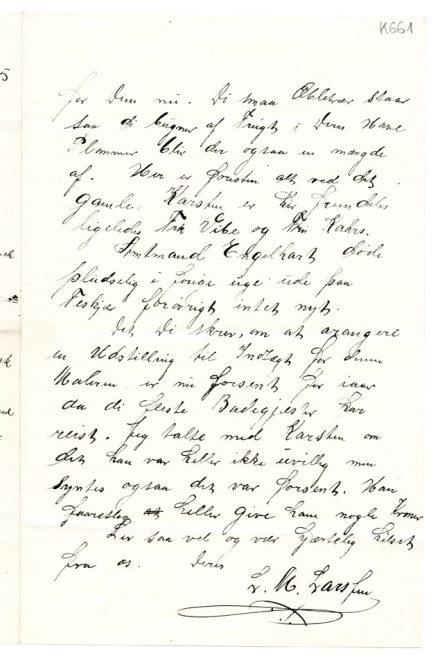 K661
for Dem nu. Di smaa Æbletrær staar
saa di bugner af Frugt i Deres Have
Plommer blir der ogsaa en mængde
af. Her er forøvrigt alt ved det
gamle. Karsten er her fremdeles
ligeledes Frk Vibe og Frk Kahrs.
Amtmand Engelhart døde
pludselig i forige uge ude paa
forøvrigt intet nyt.
Det Di skrev, om at arangere
en Udstilling til Indtægt for denne
Maleren er nu forsent for iaar
da di fleste Badegjæster har
reist. Jeg talte med Karsten om
det han var heller ikke uvillig men
syntes ogsaa det var forsent. Han
foreslog heller give ham nogle Kroner
Lev saa vel og vær hjærtelig hilset
fra os. Deres
L. M. Larssen